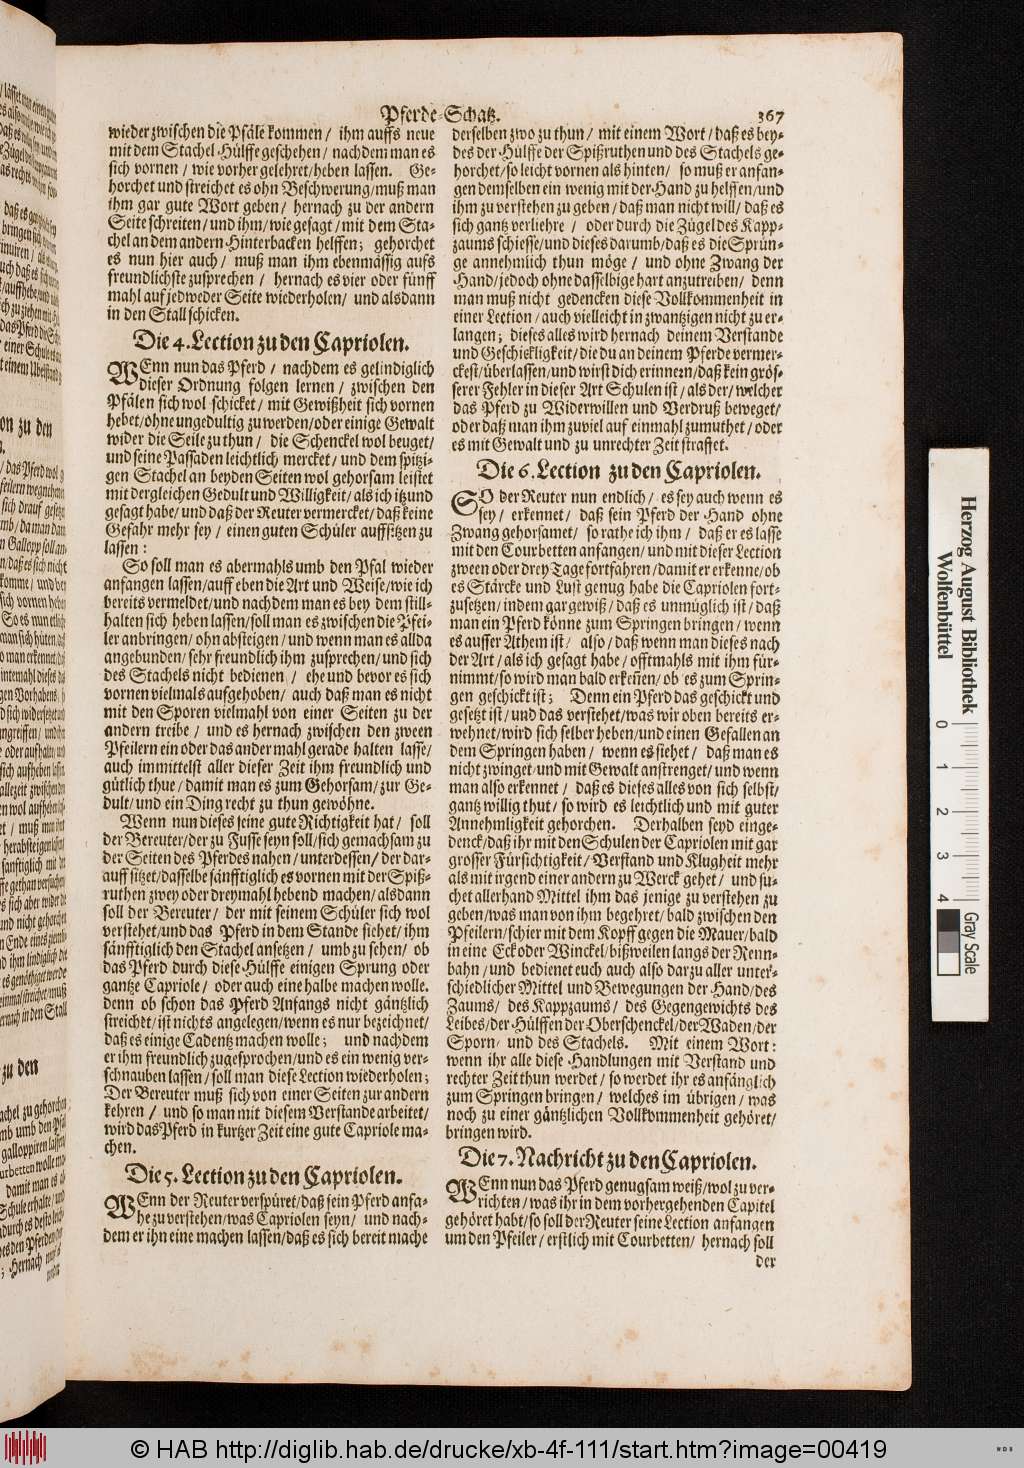 Pferde-Schatz. 367
wieder zwischen die Pfäle kommen / ihm auffs neue
mit dem Stachel Hülffe geschehen / nachdem man es
sich vornen / wie vorher gelehret / heben lassen. Ge-
horchet und streichet es ohn Beschwerung / muß man
ihm gar gute Wort geben / hernach zu der andern
Seite schreiten / und ihm / wie gesagt / mit dem Sta-
chel an dem andern Hinterbacken helffen; gehorchet
es nun hier auch / muß man ihm ebenmässig aufs
freundlichste zusprechen / hernach es vier oder fünff
mahl auf jedweder Seite wiederholen / und alsdann
in den Stall schicken.
Die 4. Lection zu den Capriolen.
WEnn nun das Pferd / nachdem es gelindiglich
dieser Ordnung folgen lernen / zwischen den
Pfälen sich wol schicket / mit Gewißheit sich vornen
hebet / ohne ungedultig zu werden / oder einige Gewalt
wider die Seile zu thun / die Schenckel wol beuget /
und seine Passaden leichtlich mercket / und dem spitzi-
gen Stachel an beyden Seiten wol gehorsam leistet
mit dergleichen Gedult und Willigkeit / als ich itzund
gesagt habe / und daß der Reuter vermercket / daß keine
Gefahr mehr sey / einen guten Schüler auffsitzen zu
lassen:
So soll man es abermahls umb den Pfal wieder
anfangen lassen / auff eben die Art und Weise / wie ich
bereits vermeldet / und nachdem man es bey dem still-
halten sich heben lassen / soll man es zwischen die Pfei-
ler anbringen / ohn absteigen / und wenn man es allda
angebunden / sehr freundlich ihm zusprechen / und sich
des Stachels nicht bedienen / ehe und bevor es sich
vornen vielmals aufgehoben / auch daß man es nicht
mit den Sporen vielmahl von einer Seiten zu der
andern treibe / und es hernach zwischen den zween
Pfeilern ein oder das ander mahl gerade halten lasse /
auch immittelst aller dieser Zeit ihm freundlich und
gütlich thue / damit man es zum Gehorsam / zur Ge-
dult / und ein Ding recht zu thun gewöhne.
Wenn nun dieses seine gute Richtigkeit hat / soll
der Bereuter / der zu Fusse seyn soll / sich gemachsam zu
der Seiten des Pferdes nahen / unterdessen / der dar-
auff sitzet / dasselbe sänfftiglich es vornen mit der Spiß-
ruthen zwey oder dreymahl hebend machen / alsdann
soll der Bereuter / der mit seinem Schüler sich wol
verstehet / und das Pferd in dem Stande siehet / ihm
sänfftiglich den Stachel ansetzen / umb zu sehen / ob
das Pferd durch diese Hülffe einigen Sprung oder
gantze Capriole / oder auch eine halbe machen wolle.
denn ob schon das Pferd Anfangs nicht gäntzlich
streicht / ist nichts angelegen / wenn es nur bezeichnet /
daß es einige Cadentz machen wolle; und nachdem
er ihm freundlich zugesprochen / und es ein wenig ver-
schnauben lassen / soll man diese Lection wiederholen;
Der Bereuter muß sich von einer Seiten zur andern
kehren / und so man mit diesem Verstande arbeitet /
wird das Pferd in kurtzer Zeit eine gute Capriole ma-
chen.
Die 5. Lection zu den Capriolen.
WEnn der Reuter verspüret / daß sein Pferd anfa-
he zu verstehen / was Capriolen seyn / und nach-
dem er ihn eine machen lassen / daß es sich bereit mache
derselben zwo zu thun / mit einem Wort / daß es bey-
des der Hülffe der Spißruthen und des Stachels ge-
horchet / so leicht vornen als hinten / so muß er anfan-
gen demselben ein wenig mit der Hand zu helffen / und
ihm zu verstehen zu geben / daß man nicht will / daß es
sich gantz verliehre / oder durch die Zügel des Kapp-
zaums schiesse / und dieses darumb / daß es die Sprün-
ge annehmlich thun möge / und ohne Zwang der
Hand / jedoch ohne dasselbige hart anzutreiben / denn
man muß nicht gedencken diese Vollkommenheit in
einer Lection / auch vielleicht in zwantzigen nicht zu er-
langen; dieses alles wird hernach deinem Verstande
und Geschickligkeit / die du an deinem Pferde vermer-
ckest / überlassen / und wirst dich erinnern / daß kein grös-
serer Fehler in dieser Art Schulen ist / als der / welcher
das Pferd zu Widerwillen und Verdruß beweget /
oder daß man ihm zuviel auf einmahl zumuthet / oder
es mit Gewalt und zu unrechter Zeit straffet.
Die 6. Lection zu den Capriolen.
SO der Reuter nun endlich / es sey auch wenn es
sey / erkennet / daß sein Pferd der Hand ohne
Zwang gehorsamet / so rathe ich ihm / daß er es lasse
mit den Courbetten anfangen / und mit dieser Lection
zween oder drey Tage fortfahren / damit er erkenne / ob
es Stärcke und Lust genug habe die Capriolen fort-
zusetzen / indem gar gewiß / daß es unmüglich ist / daß
man ein Pferd könne zum Springen bringen / wenn
es ausser Athem ist / also / daß wenn man dieses nach
der Art / als ich gesagt habe / offtmahls mit ihm für-
nimmt / so wird man bald erkeñen / ob es zum Sprin-
gen geschickt ist; Denn ein Pferd das geschickt und
gesetzt ist / und das verstehet / was wir oben bereits er-
wehnet / wird sich selber heben / und einen Gefallen an
dem Springen haben / wenn es siehet / daß man es
nicht zwinget / und mit Gewalt anstrenget / und wenn
man also erkennet / daß es dieses alles von sich selbst /
gantz willig thut / so wird es leichtlich und mit guter
Annehmligkeit gehorchen. Derhalben seyd einge-
denck / daß ihr mit den Schulen der Capriolen mit gar
grosser Fürsichtigkeit / Verstand und Klugheit mehr
als mit irgend einer andern zu Werck gehet / und su-
chet allerhand Mittel ihm das jenige zu verstehen zu
geben / was man von ihm begehret / bald zwischen den
Pfeilern / schier mit dem Kopff gegen die Mauer / bald
in eine Eck oder Winckel / bißweilen langs der Renn-
bahn / und bedienet euch auch also darzu aller unter-
schiedlicher Mittel und Bewegungen der Hand / des
Zaums / des Kappzaums / des Gegengewichts des
Leibes / der Hülffen der Oberschenckel / der Waden / der
Sporn- und des Stachels. Mit einem Wort:
wenn ihr alle diese Handlungen mit Verstand und
rechter Zeit thun werdet / so werdet ihr es anfänglich
zum Springen bringen / welches im übrigen / was
noch zu einer gäntzlichen Vollkommenheit gehöret /
bringen wird.
Die 7. Nachricht zu den Capriolen.
WEnn nun das Pferd genugsam weiß / wol zu ver-
richten / was ihr in dem vorhergehenden Capitel
gehöret habt / so soll der Reuter seine Lection anfangen
um den Pfeiler / erstlich mit Courbetten / hernach soll
der
Herzog August Bibliothek
Wolfenbüttel
0 1 2 3 4
Gray Scale
© HAB http://diglib.hab.de/drucke/xb-4f-111/start.htm?image=00419